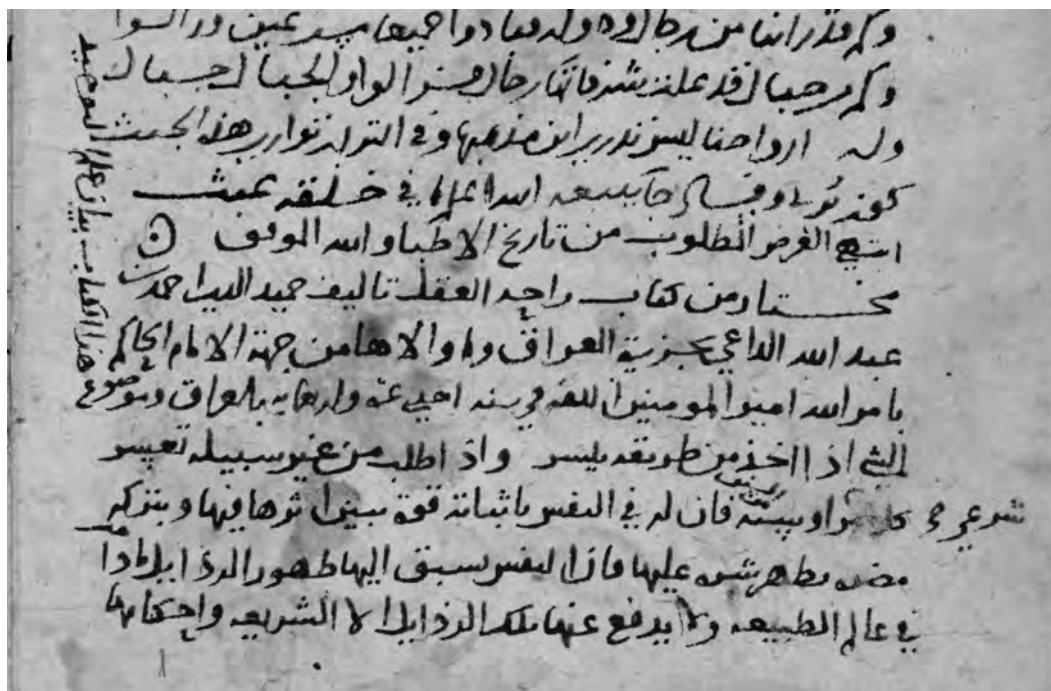 وكم قد راينا من رجال ودولة فبادوا جميعا مسرعين وزالوا
وكم من جبال قد علت شرفاتها رجال فزالوا والجبال جبال
وله ارواحنا ليس ندري اين مذهبها وفي التراب توارى هذه الجثث
كون يرى وفساد جا يتبعه الله اعلم ما في خلقه عبث
انتهى الغرض المطلوب من تاريخ الاطبا والله الموفق
مختار من كتاب راحة العقل تاليف حميد الدين احمد بن
عبد الله الداعي بجزيرة العراق وما والاها من جهة الامام الحاكم
بامر الله امير المومنين الفه في سنة احدى عشر واربعمايه بالعراق
وموضوع هذا الكتاب بيان علم التوحيد
الشي اذا اخذ من طريقه يتيسر واذا طلب من غير سبيله تعسر
شرعي فان له في النفس باثباته قوة يبين اثرها فيها
عليها فان النفس يسبق اليها ظهور الرذايل
في عالم الطبيعه ولا يدفع عنها تلك الرذايل الا الشريعه واحكامها